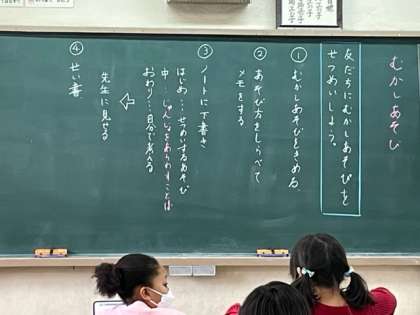 むかしあそび
友だちにむかしあそびを
せつめいしよう。
① むかしあそびをきめる。
② あそび方をしらべて
メモをする
③ ノートに下書き
はじめ…せつめいするあそび
中…じゅんじょをあらわすことば
おわり…自分で考える
先生に見せる
④ せい書